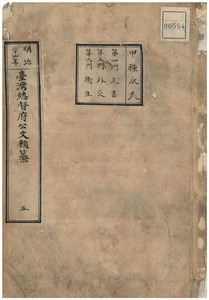 00554
甲種永久
第四門文書
第五門外交
第六門衛生
明治
臺灣總督府公文類纂
五